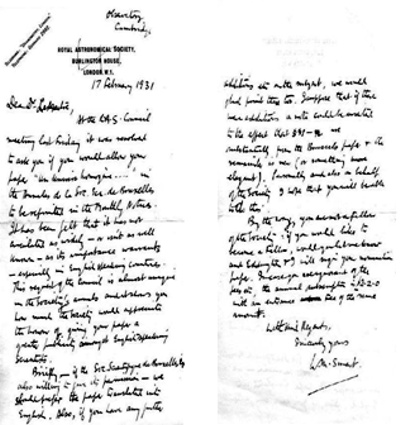 Observatory
Cambridge
ROYAL ASTRONOMICAL SOCIETY,
BURLINGTON HOUSE,
LONDON. W.1.
17 February 1931
Dear Dr. Lemaître,
At the R.A.S. Council
meeting last Friday it was resolved
to ask you if you would allow your
paper "Un Univers homogène....." in
the Annales de la Soc. Sce. de Bruxelles
to be reprinted in the Monthly Notices.
It has been felt that it has not
circulated as widely – or isn't as well
known – as its importance warrants
– especially in English speaking countries.
This request of the Council is almost unique
in the Society's annals and it shows you
how much the Society would appreciate
the honour of giving your paper a
greater publicity amongst English speaking
Scientists.
Briefly – if the Soc. Scientifique de Bruxelles is
also willing to give its permission – we
should prefer the paper translated into
English. Also, if you have any further
additions etc on the subject, we would
glad print these too. I suppose that if there
were additions a note could be inserted
to the effect that §§1–n are
substantially from the Brussels paper & the
remainder is new (or something more
elegant). Personally and also on behalf
of the Society I hope that you will be able
to do this.
By the way, you are not a fellow
of the Society: if you would like to
become a fellow, would you let me know
and Eddington & I will sign your nomination
paper. In case you are ignorant of the
fees etc. the annual subscription is £3-2-0
with an entrance fee of the same
amount.
With kind Regards,
Sincerely yours
W.M. Smart.